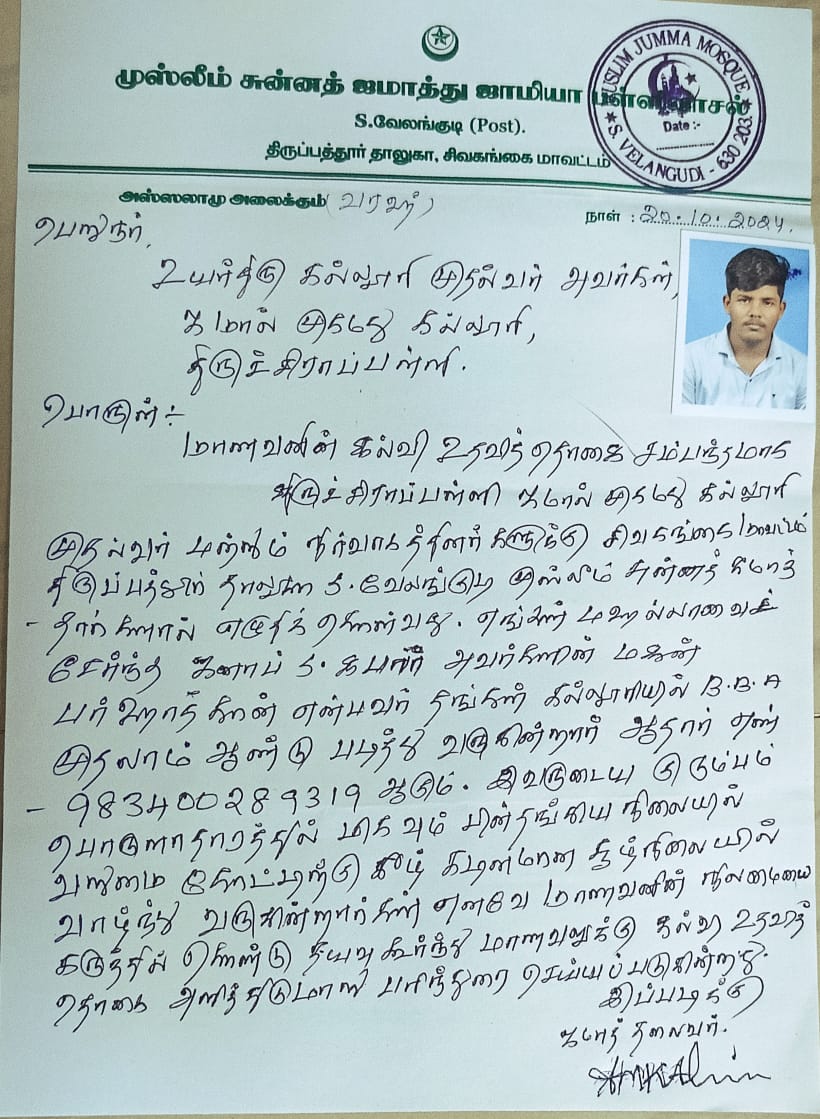 முஸ்லீம் சுன்னத் ஜமாத்து ஜாமியா பள்ளிவாசல்
S.வேலங்குடி (Post).
திருப்பத்தூர் தாலுகா, சிவகங்கை மாவட்டம்
MUSLIM JUMMA MOSQUE
Date :-
S. VELANGUDI - 630 203.
அஸ்ஸலாமு அலைக்கும் (வரஹ்)
நாள் : 20.10.2024.
பெறுநர்,
உயர்திரு கல்லூரி முதல்வர் அவர்கள்,
ஜமால் முகமது கல்லூரி,
திருச்சிராப்பள்ளி.
பொருள் :-
மாணவனின் கல்வி உதவித்தொகை சம்பந்தமாக
திருச்சிராப்பள்ளி ஜமால் முகமது கல்லூரி
முதல்வர் மற்றும் நிர்வாகத்தினர்களுக்கு சிவகங்கை மாவட்டம்
திருப்பத்தூர் தாலுகா S.வேலங்குடி முஸ்லீம் சுன்னத் ஜமாத்
- தார்களால் எழுதிக் கொள்வது. எங்கள் மஹல்லாவைச்
சேர்ந்த ஜனாப் S. கபீர் அவர்களின் மகன்
பர்ஹாத் கான் என்பவர் தங்கள் கல்லூரியில் B.B.A
முதலாம் ஆண்டு படித்து வருகின்றார் ஆதார் எண்
- 983400289319 ஆகும். இவருடைய குடும்பம்
பொருளாதாரத்தில் மிகவும் பின்தங்கிய நிலையில்
வறுமை கோட்டிற்கு கீழ் கடினமான சூழ்நிலையில்
வாழ்ந்து வருகின்றார்கள் எனவே மாணவனின் நிலமையை
கருத்தில் கொண்டு தயவு கூர்ந்து மாணவனுக்கு கல்வி உதவித்
தொகை அளித்திடுமாறு பரிந்துரை செய்யப்படுகின்றது.
இப்படிக்கு
ஜமாத் தலைவர்.